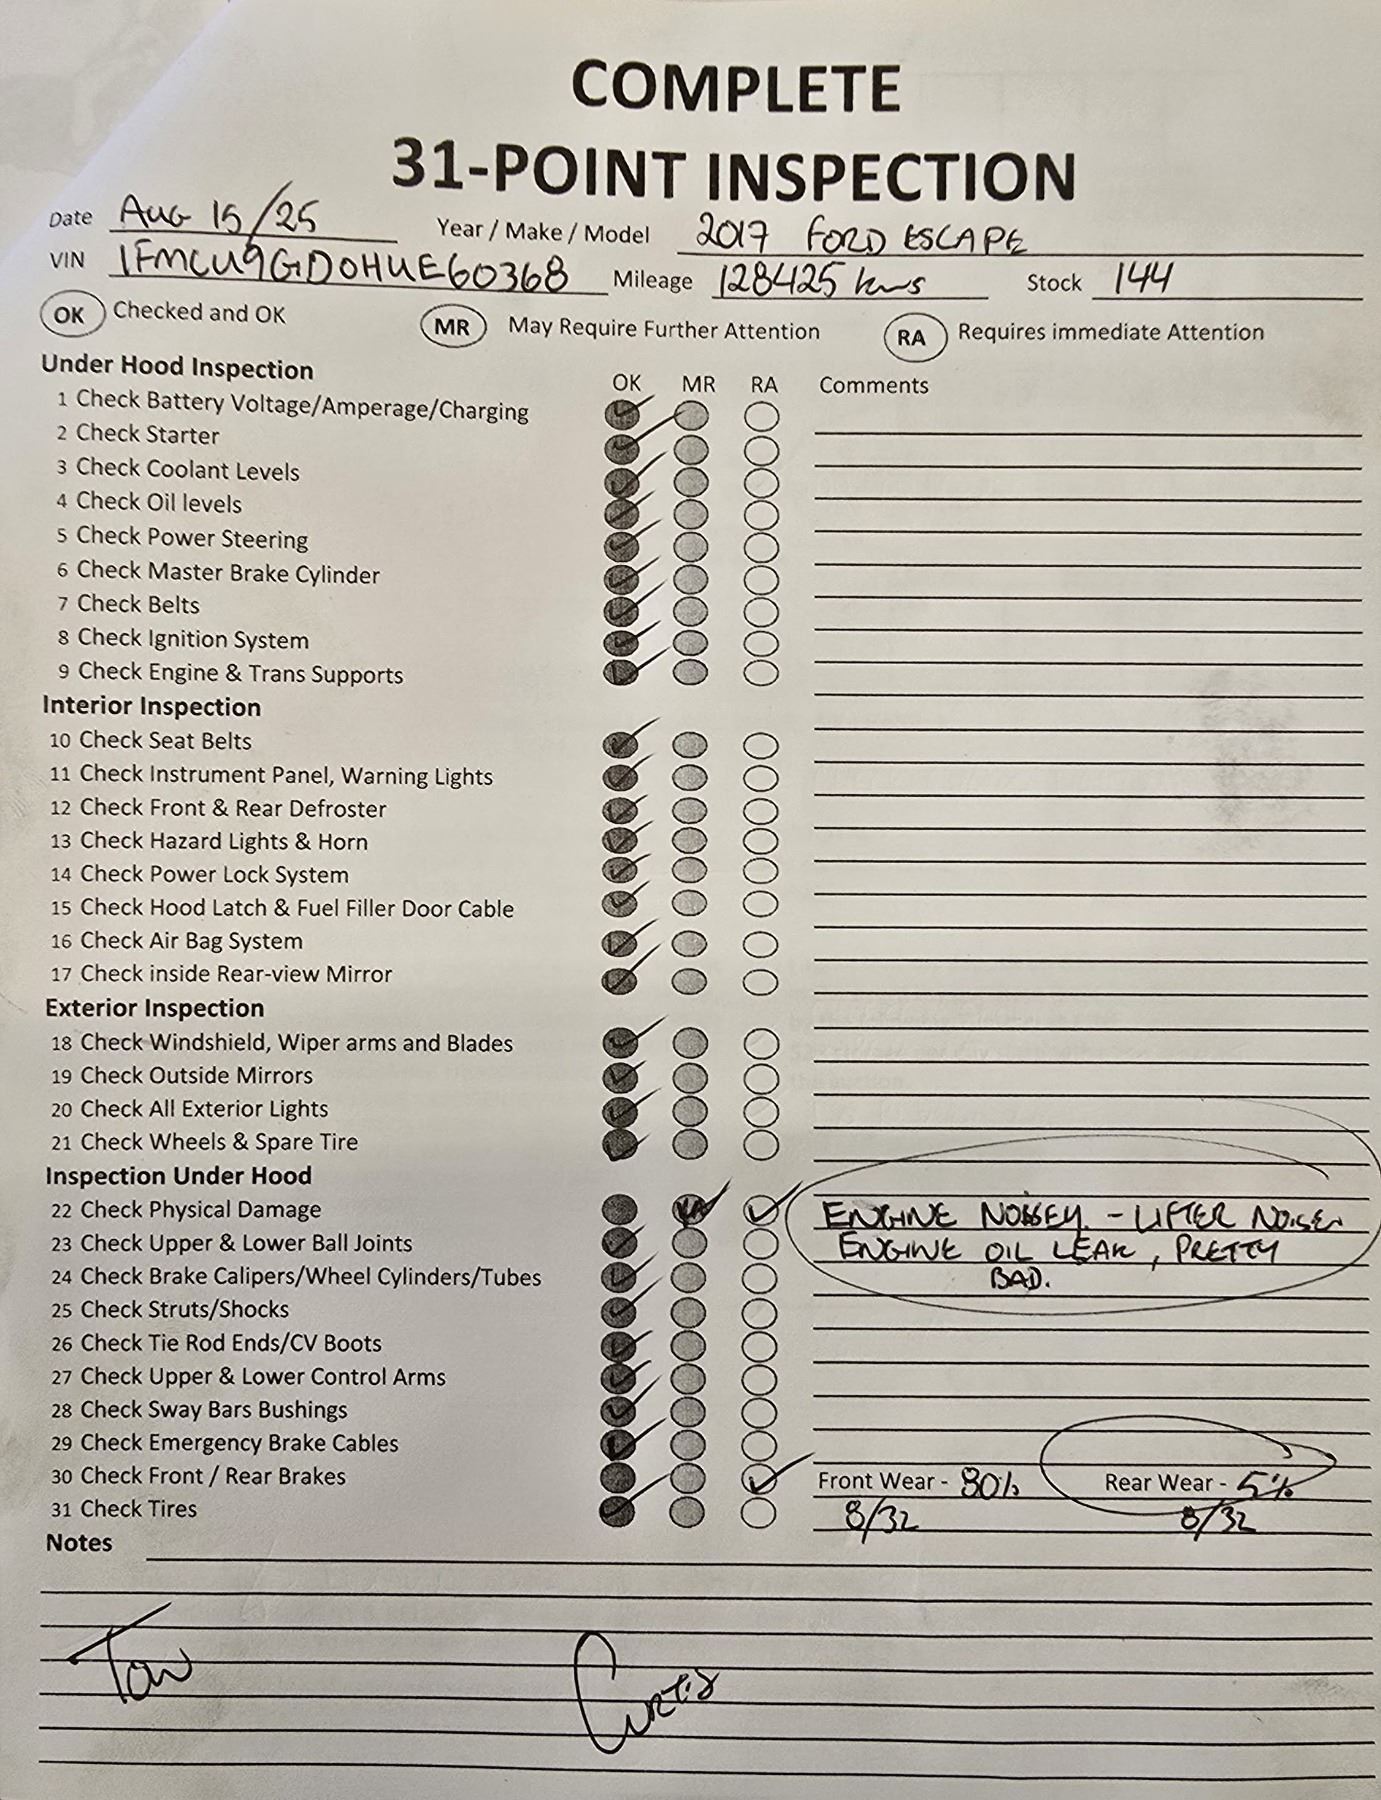 COMPLETE
31-POINT INSPECTION
Date Aug 15/25 Year / Make / Model 2017 FORD ESCAPE
VIN 1FMCU9GD0HUE60368 Mileage 128425 kms Stock 144
OK Checked and OK MR May Require Further Attention RA Requires immediate Attention
Under Hood Inspection OK MR RA Comments
1 Check Battery Voltage/Amperage/Charging
2 Check Starter
3 Check Coolant Levels
4 Check Oil levels
5 Check Power Steering
6 Check Master Brake Cylinder
7 Check Belts
8 Check Ignition System
9 Check Engine & Trans Supports
Interior Inspection
10 Check Seat Belts
11 Check Instrument Panel, Warning Lights
12 Check Front & Rear Defroster
13 Check Hazard Lights & Horn
14 Check Power Lock System
15 Check Hood Latch & Fuel Filler Door Cable
16 Check Air Bag System
17 Check inside Rear-view Mirror
Exterior Inspection
18 Check Windshield, Wiper arms and Blades
19 Check Outside Mirrors
20 Check All Exterior Lights
21 Check Wheels & Spare Tire
Inspection Under Hood
22 Check Physical Damage ENGINE NOISEY. - LIFTER NOISE
23 Check Upper & Lower Ball Joints ENGINE OIL LEAK, PRETTY
24 Check Brake Calipers/Wheel Cylinders/Tubes BAD.
25 Check Struts/Shocks
26 Check Tie Rod Ends/CV Boots
27 Check Upper & Lower Control Arms
28 Check Sway Bars Bushings
29 Check Emergency Brake Cables
30 Check Front / Rear Brakes Front Wear - 80% Rear Wear - 5%
31 Check Tires 8/32 8/32
Notes
Curtis